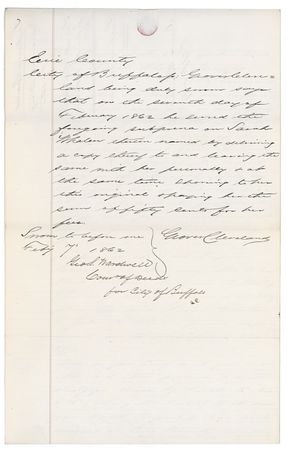 Erie County
City of Buffalo ss. Grover Cleve-
land being duly sworn says
that on the seventh day of
February 1862 he served the
foregoing subpoena on Sarah
Whalen therein named by delivering
a copy thereof to and leaving the
same with her personally & at
the same time showing to her
this original & paying her the
sum of fifty cents for her
fees
Sworn to before me Grover Cleveland
Feby 7 1862
Wardwell
Comr of Deeds
for City of Buffalo